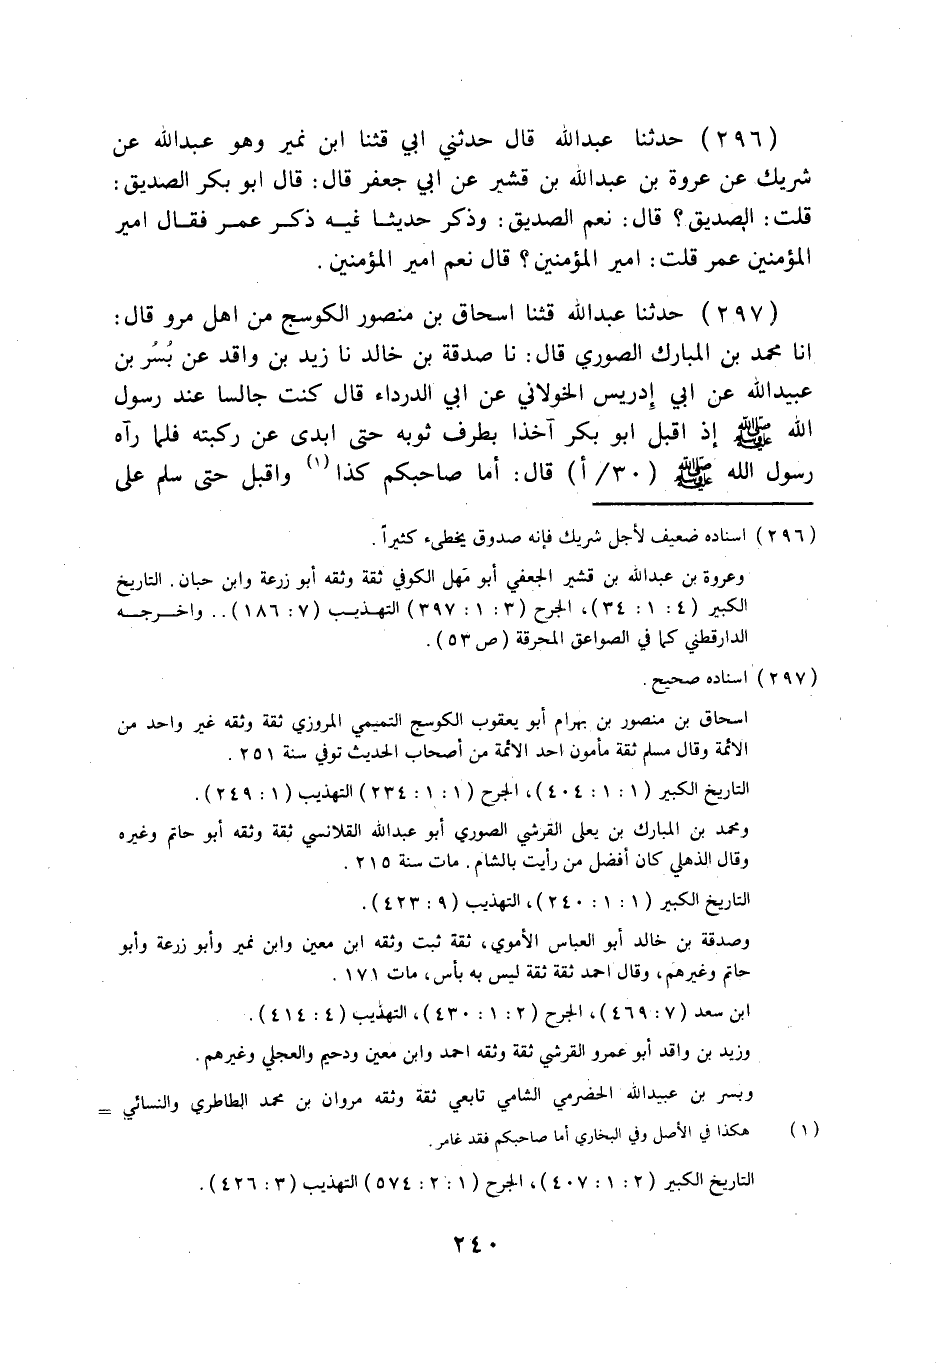 (٢٩٦) حدثنا عبدالله قال حدثني ابي قثنا ابن نمير وهو عبدالله عن
شريك عن عروة بن عبدالله بن قشير عن ابي جعفر قال: قال ابو بكر الصديق:
قلت: الصديق؟ قال: نعم الصديق: وذكر حديثا فيه ذكر عمر فقال امير
المؤمنين عمر قلت: امير المؤمنين؟ قال نعم امير المؤمنين.
(٢٩٧) حدثنا عبدالله قثنا اسحاق بن منصور الكوسج من اهل مرو قال:
انا محمد بن المبارك الصوري قال: نا صدقة بن خالد نا زيد بن واقد عن بُسُر بن
عبيدالله عن ابي إدريس الخولاني عن ابي الدرداء قال كنت جالسا عند رسول
الله ﷺ إذ اقبل ابو بكر آخذا بطرف ثوبه حتى ابدى عن ركبته فلما رآه
رسول الله ﷺ (٣٠/أ) قال: أما صاحبكم كذا(١) واقبل حتى سلم على
(٢٩٦) اسناده ضعيف لأجل شريك فإنه صدوق يخطىء كثيراً.
وعروة بن عبدالله بن قشير الجعفي أبو مَهل الكوفي ثقة وثقه أبو زرعة وابن حبان. التاريخ
الكبير (٤: ١: ٣٤)، الجرح (٣: ١: ٣٩٧) التهذيب (٧: ١٨٦).. واخرجه
الدارقطني كما في الصواعق المحرقة (ص ٥٣).
(٢٩٧) اسناده صحيح.
اسحاق بن منصور بن بهرام أبو يعقوب الكوسج التميمي المروزي ثقة وثقه غير واحد من
الائمة وقال مسلم ثقة مأمون احد الائمة من أصحاب الحديث توفي سنة ٢٥١.
التاريخ الكبير (١: ١: ٤٠٤)، الجرح (١: ١: ٢٣٤) التهذيب (١: ٢٤٩).
ومحمد بن المبارك بن يعلى القرشي الصوري أبو عبدالله القلانسي ثقة وثقه أبو حاتم وغيره
وقال الذهلي كان أفضل من رأيت بالشام. مات سنة ٢١٥.
التاريخ الكبير (١: ١: ٢٤٠)، التهذيب (٩: ٤٢٣).
وصدقة بن خالد أبو العباس الأموي، ثقة ثبت وثقه ابن معين وابن نمير وأبو زرعة وأبو
حاتم وغيرهم، وقال احمد ثقة ثقة ليس به بأس، مات ١٧١.
ابن سعد (٧: ٤٦٩)، الجرح (٢: ١: ٤٣٠)، التهذيب (٤: ٤١٤).
وزيد بن واقد أبو عمرو القرشي ثقة وثقه احمد وابن معين ودحيم والعجلي وغيرهم.
وبسر بن عبيدالله الحضرمي الشامي تابعي ثقة وثقه مروان بن محمد الطاطري والنسائي =
(١) هكذا في الأصل وفي البخاري أما صاحبكم فقد غامر.
التاريخ الكبير (٢: ١: ٤٠٧)، الجرح (١: ٢: ٥٧٤) التهذيب (٣: ٤٢٦).
٢٤٠